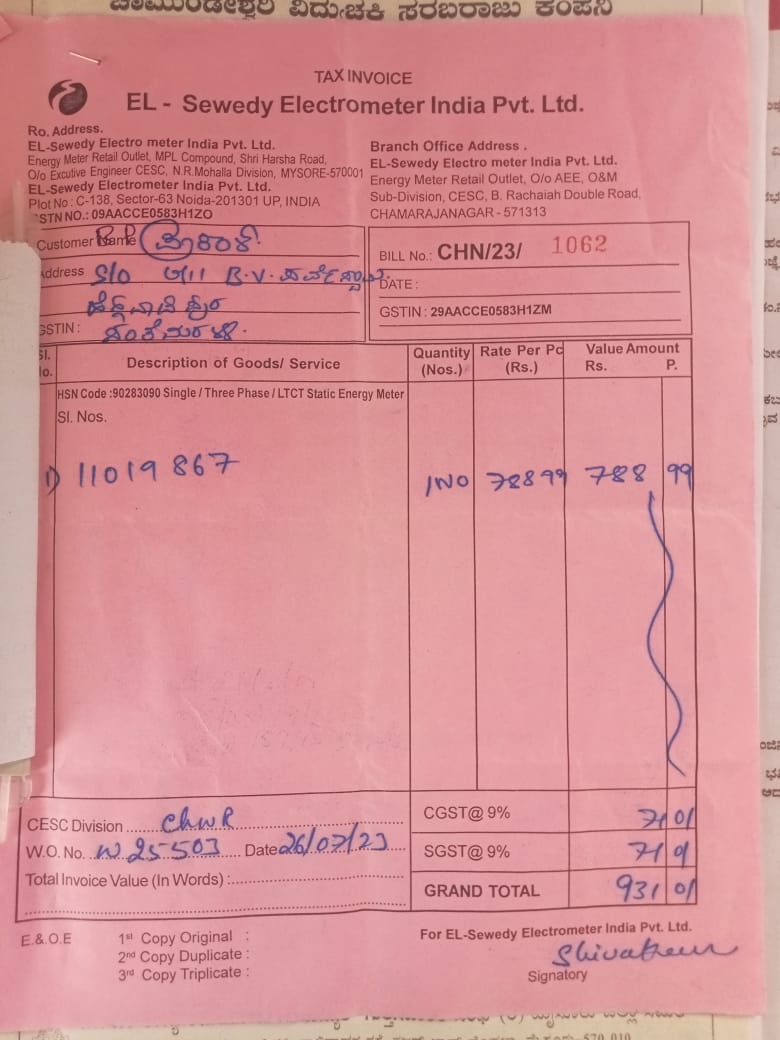 ಚಾಮುಂಡೇಶ್ವರಿ ವಿದ್ಯುಚ್ಛಕ್ತಿ ಸರಬರಾಜು ಕಂಪನಿ
TAX INVOICE
EL - Sewedy Electrometer India Pvt. Ltd.
Ro. Address.
EL-Sewedy Electro meter India Pvt. Ltd.
Energy Meter Retail Outlet, MPL Compound, Shri Harsha Road,
O/o Excutive Engineer CESC, N.R.Mohalla Division, MYSORE-570001
EL-Sewedy Electrometer India Pvt. Ltd.
Plot No : C-138, Sector-63 Noida-201301 UP, INDIA
GSTN NO.: 09AACCE0583H1ZO
Branch Office Address .
EL-Sewedy Electro meter India Pvt. Ltd.
Energy Meter Retail Outlet, O/o AEE, O&M
Sub-Division, CESC, B. Rachaiah Double Road,
CHAMARAJANAGAR - 571313
Customer Name
Address S/o B.V.
GSTIN :
BILL No.: CHN/23/ 1062
DATE :
GSTIN : 29AACCE0583H1ZM
Sl. No. Description of Goods/ Service Quantity (Nos.) Rate Per Pc (Rs.) Value Amount Rs. P.
HSN Code :90283090 Single / Three Phase / LTCT Static Energy Meter
Sl. Nos.
1) 11019867 1NO 788 99 788 99
CESC Division ChNR
W.O. No. W 25503 Date 26/07/23
Total Invoice Value (In Words) :
CGST@ 9% 71 01
SGST@ 9% 71 01
GRAND TOTAL 931 01
E.& O.E 1st Copy Original :
2nd Copy Duplicate :
3rd Copy Triplicate :
For EL-Sewedy Electrometer India Pvt. Ltd.
Signatory